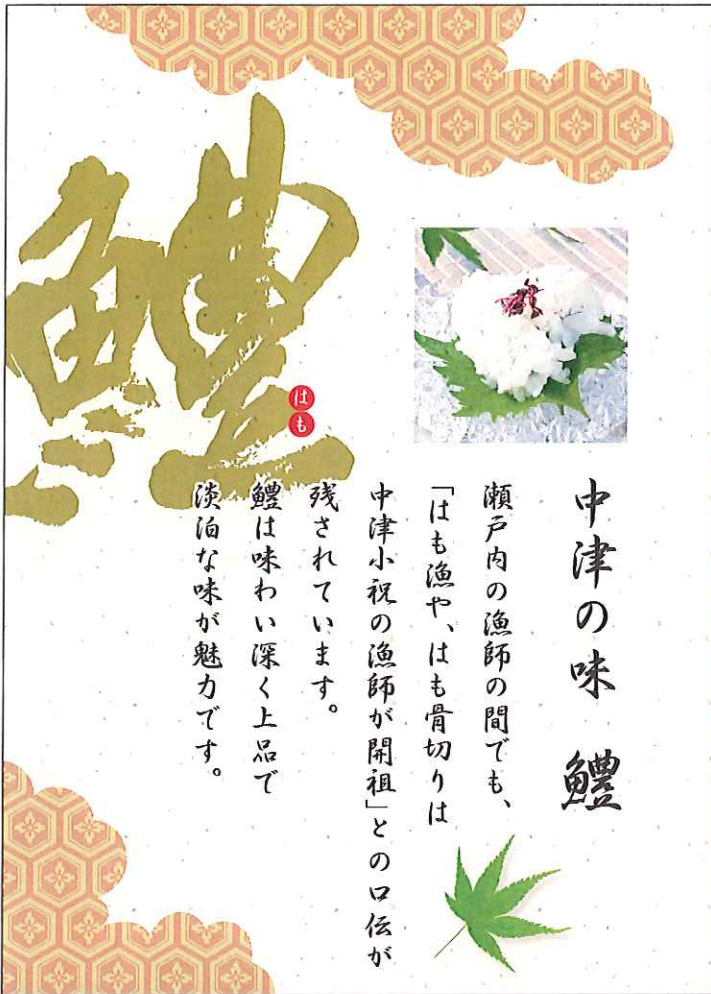 中津の味　鱧
瀬戸内の漁師の間でも、
「はも漁や、はも骨切りは
中津小祝の漁師が開祖」との口伝が
残されています。
鱧は味わい深く上品で
淡泊な味が魅力です。
鱧
はも